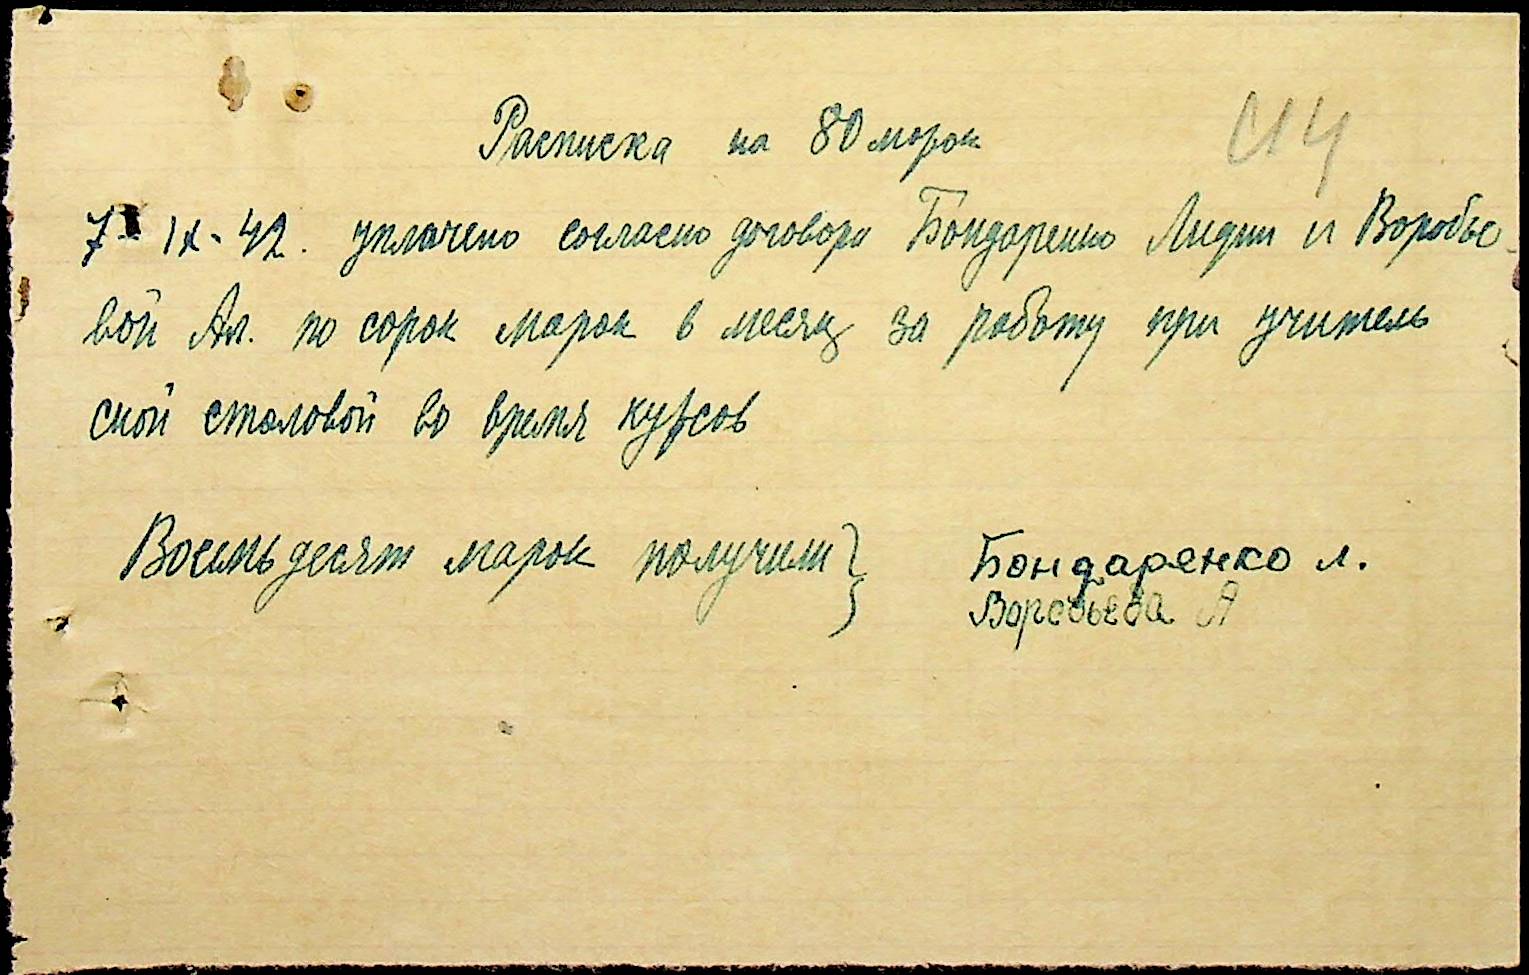 Расписка на 80 марок
7-IX-42. уплачено согласно договора Бондаренко Лидии и Воробье-
вой Ал. по сорок марок в месяц за работу при учитель
ской столовой во время курсов
Восемьдесят марок получили }
Бондаренко Л.
Воробьева А